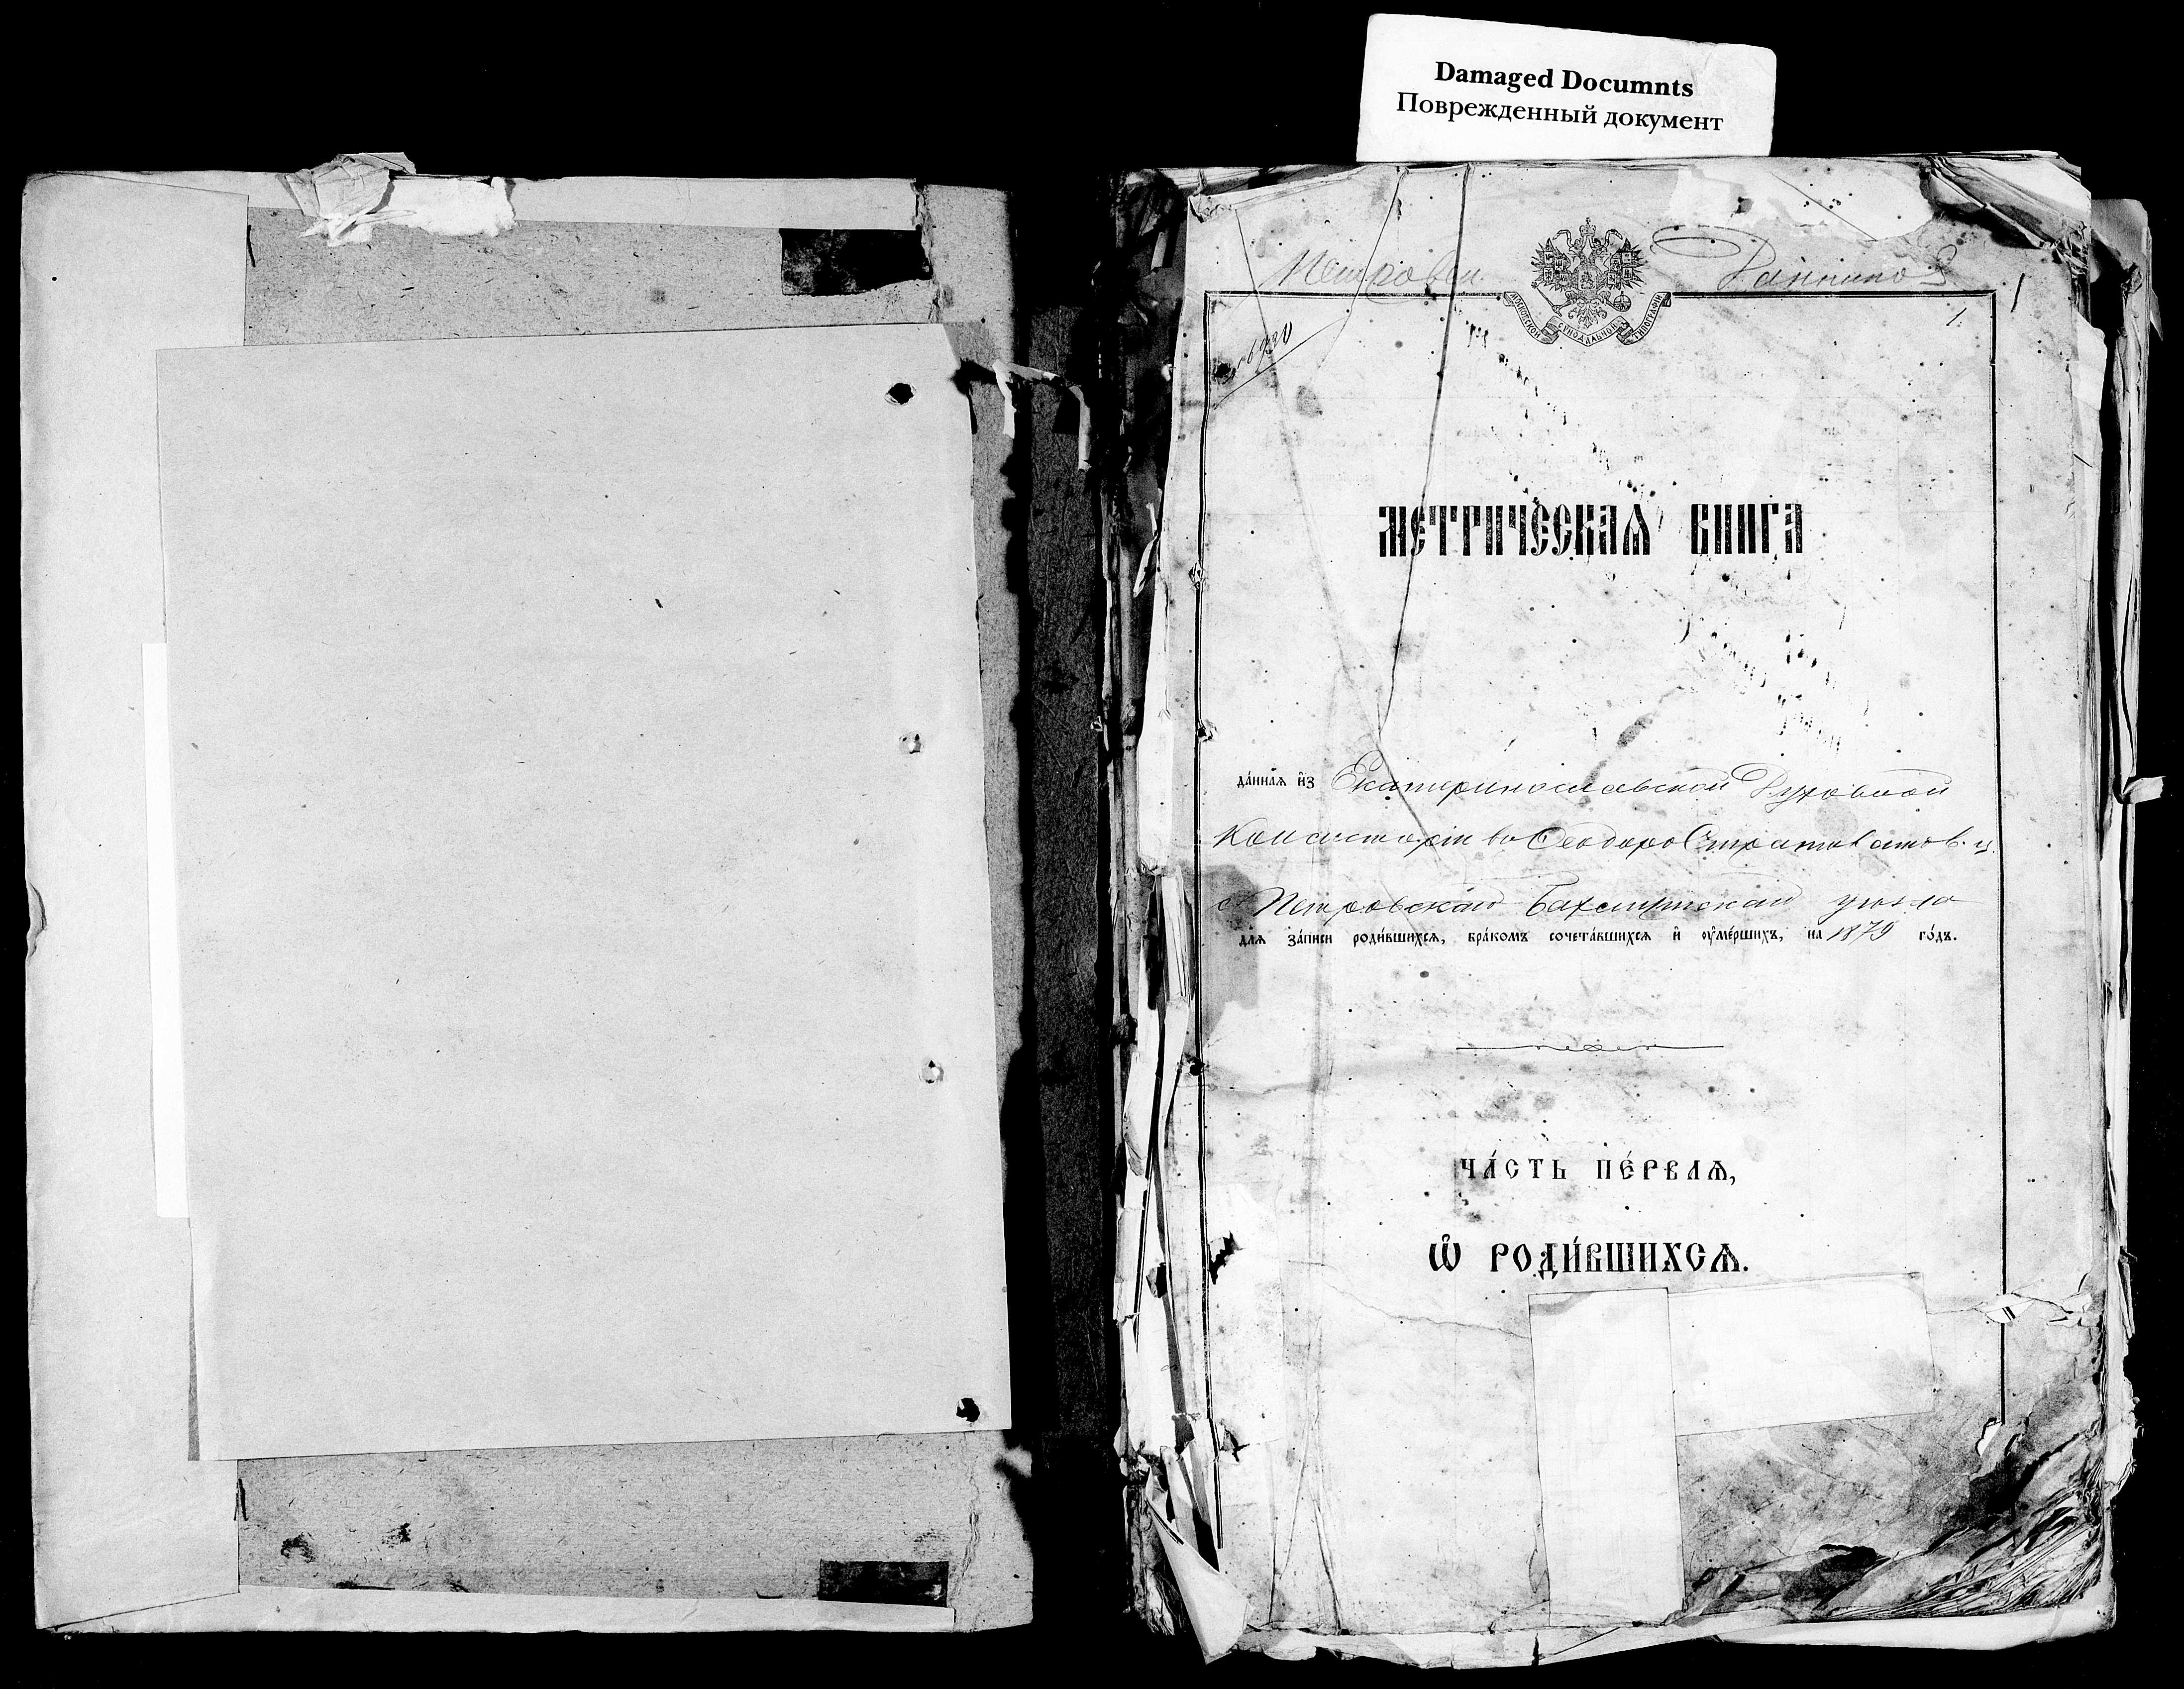 Damaged Documnts
Поврежденный документ
1
1.
МОСКОВСКОЙ СѴНОДАЛЬНОЙ ТИПОГРАФІИ
МЕТРИЧЕСКАѦ КНИГА
да́ннаѧ и҆з̾ Екатеринославской Духовной
Консисторіи во Ѳеодоро Стратилатов. ц.
с. Петровской Бахмутскаго уѣзда
длѧ за́писи роди́вшихсѧ, бра́комъ сочета́вшихсѧ и҆ ᲂу҆ме́ршихъ, на 1879 го́дъ.
ЧА́СТЬ ПЕ́РВАѦ,
Ѡ҆ РОДИ́ВШИХСѦ.